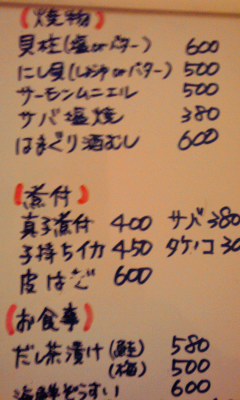 (焼物)
貝柱(塩orバター) 600
にし貝(しょうゆorバター) 500
サーモンムニエル 500
サバ塩焼 380
はまぐり酒むし 600
(煮付)
真子煮付 400 サバ 380
子持ちイカ 450 タケノコ 30
皮はぎ 600
(お食事)
だし茶漬け(鮭) 580
(梅) 500
海鮮ぞうすい 600